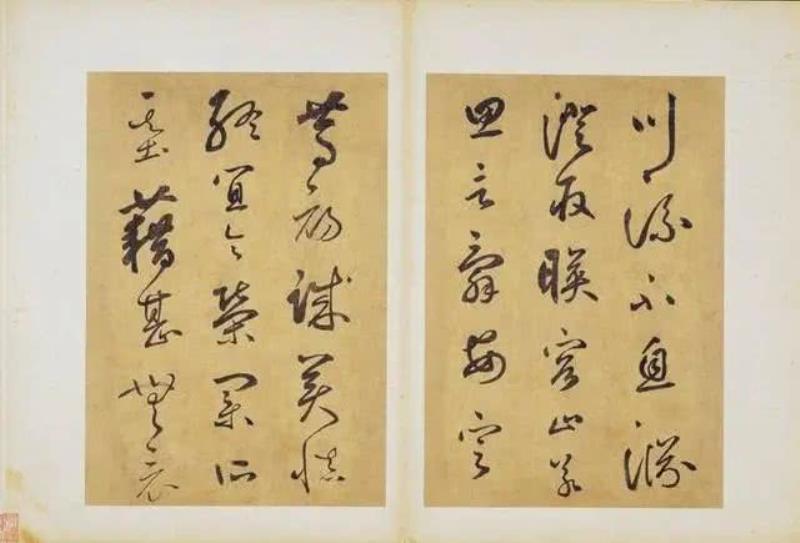 川流不息淵
澄取暎容止若
思言辭安定
篤初誠美慎
終宜令榮業所
基藉甚無竟